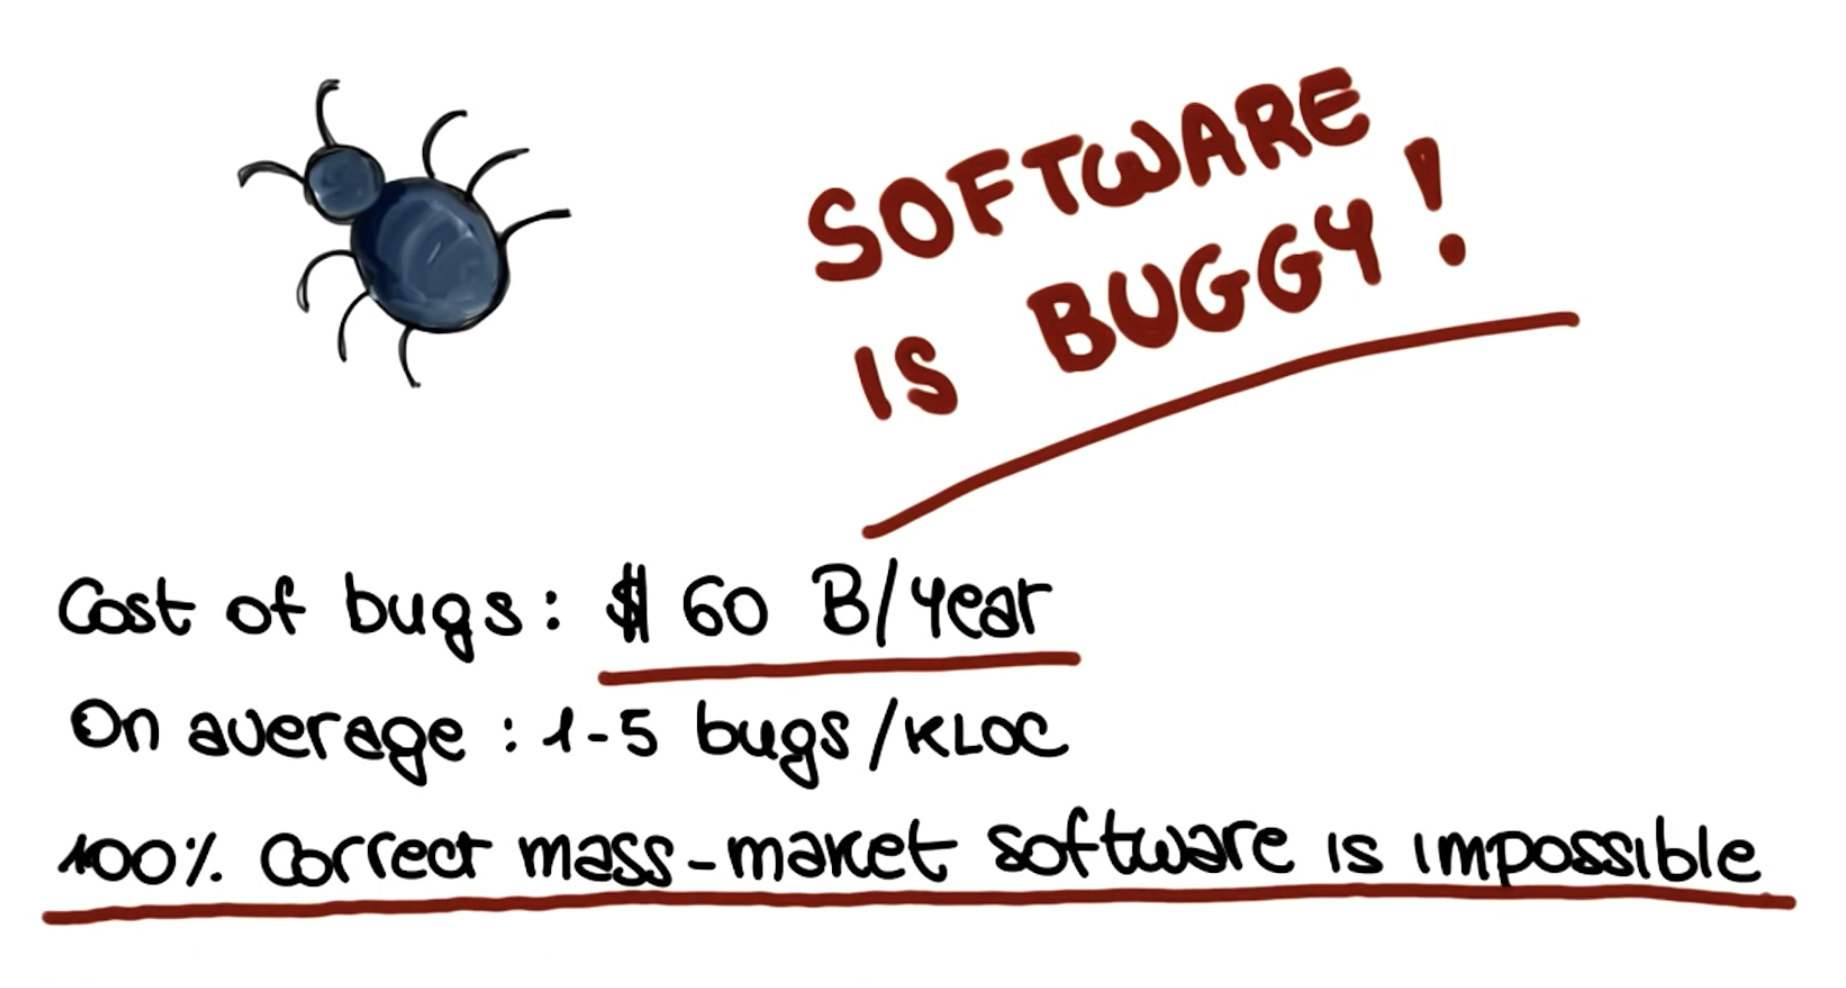 SOFTWARE
IS BUGGY!
Cost of bugs: $ 60 B/year
On average : 1-5 bugs/KLOC
100% correct mass-market software is impossible